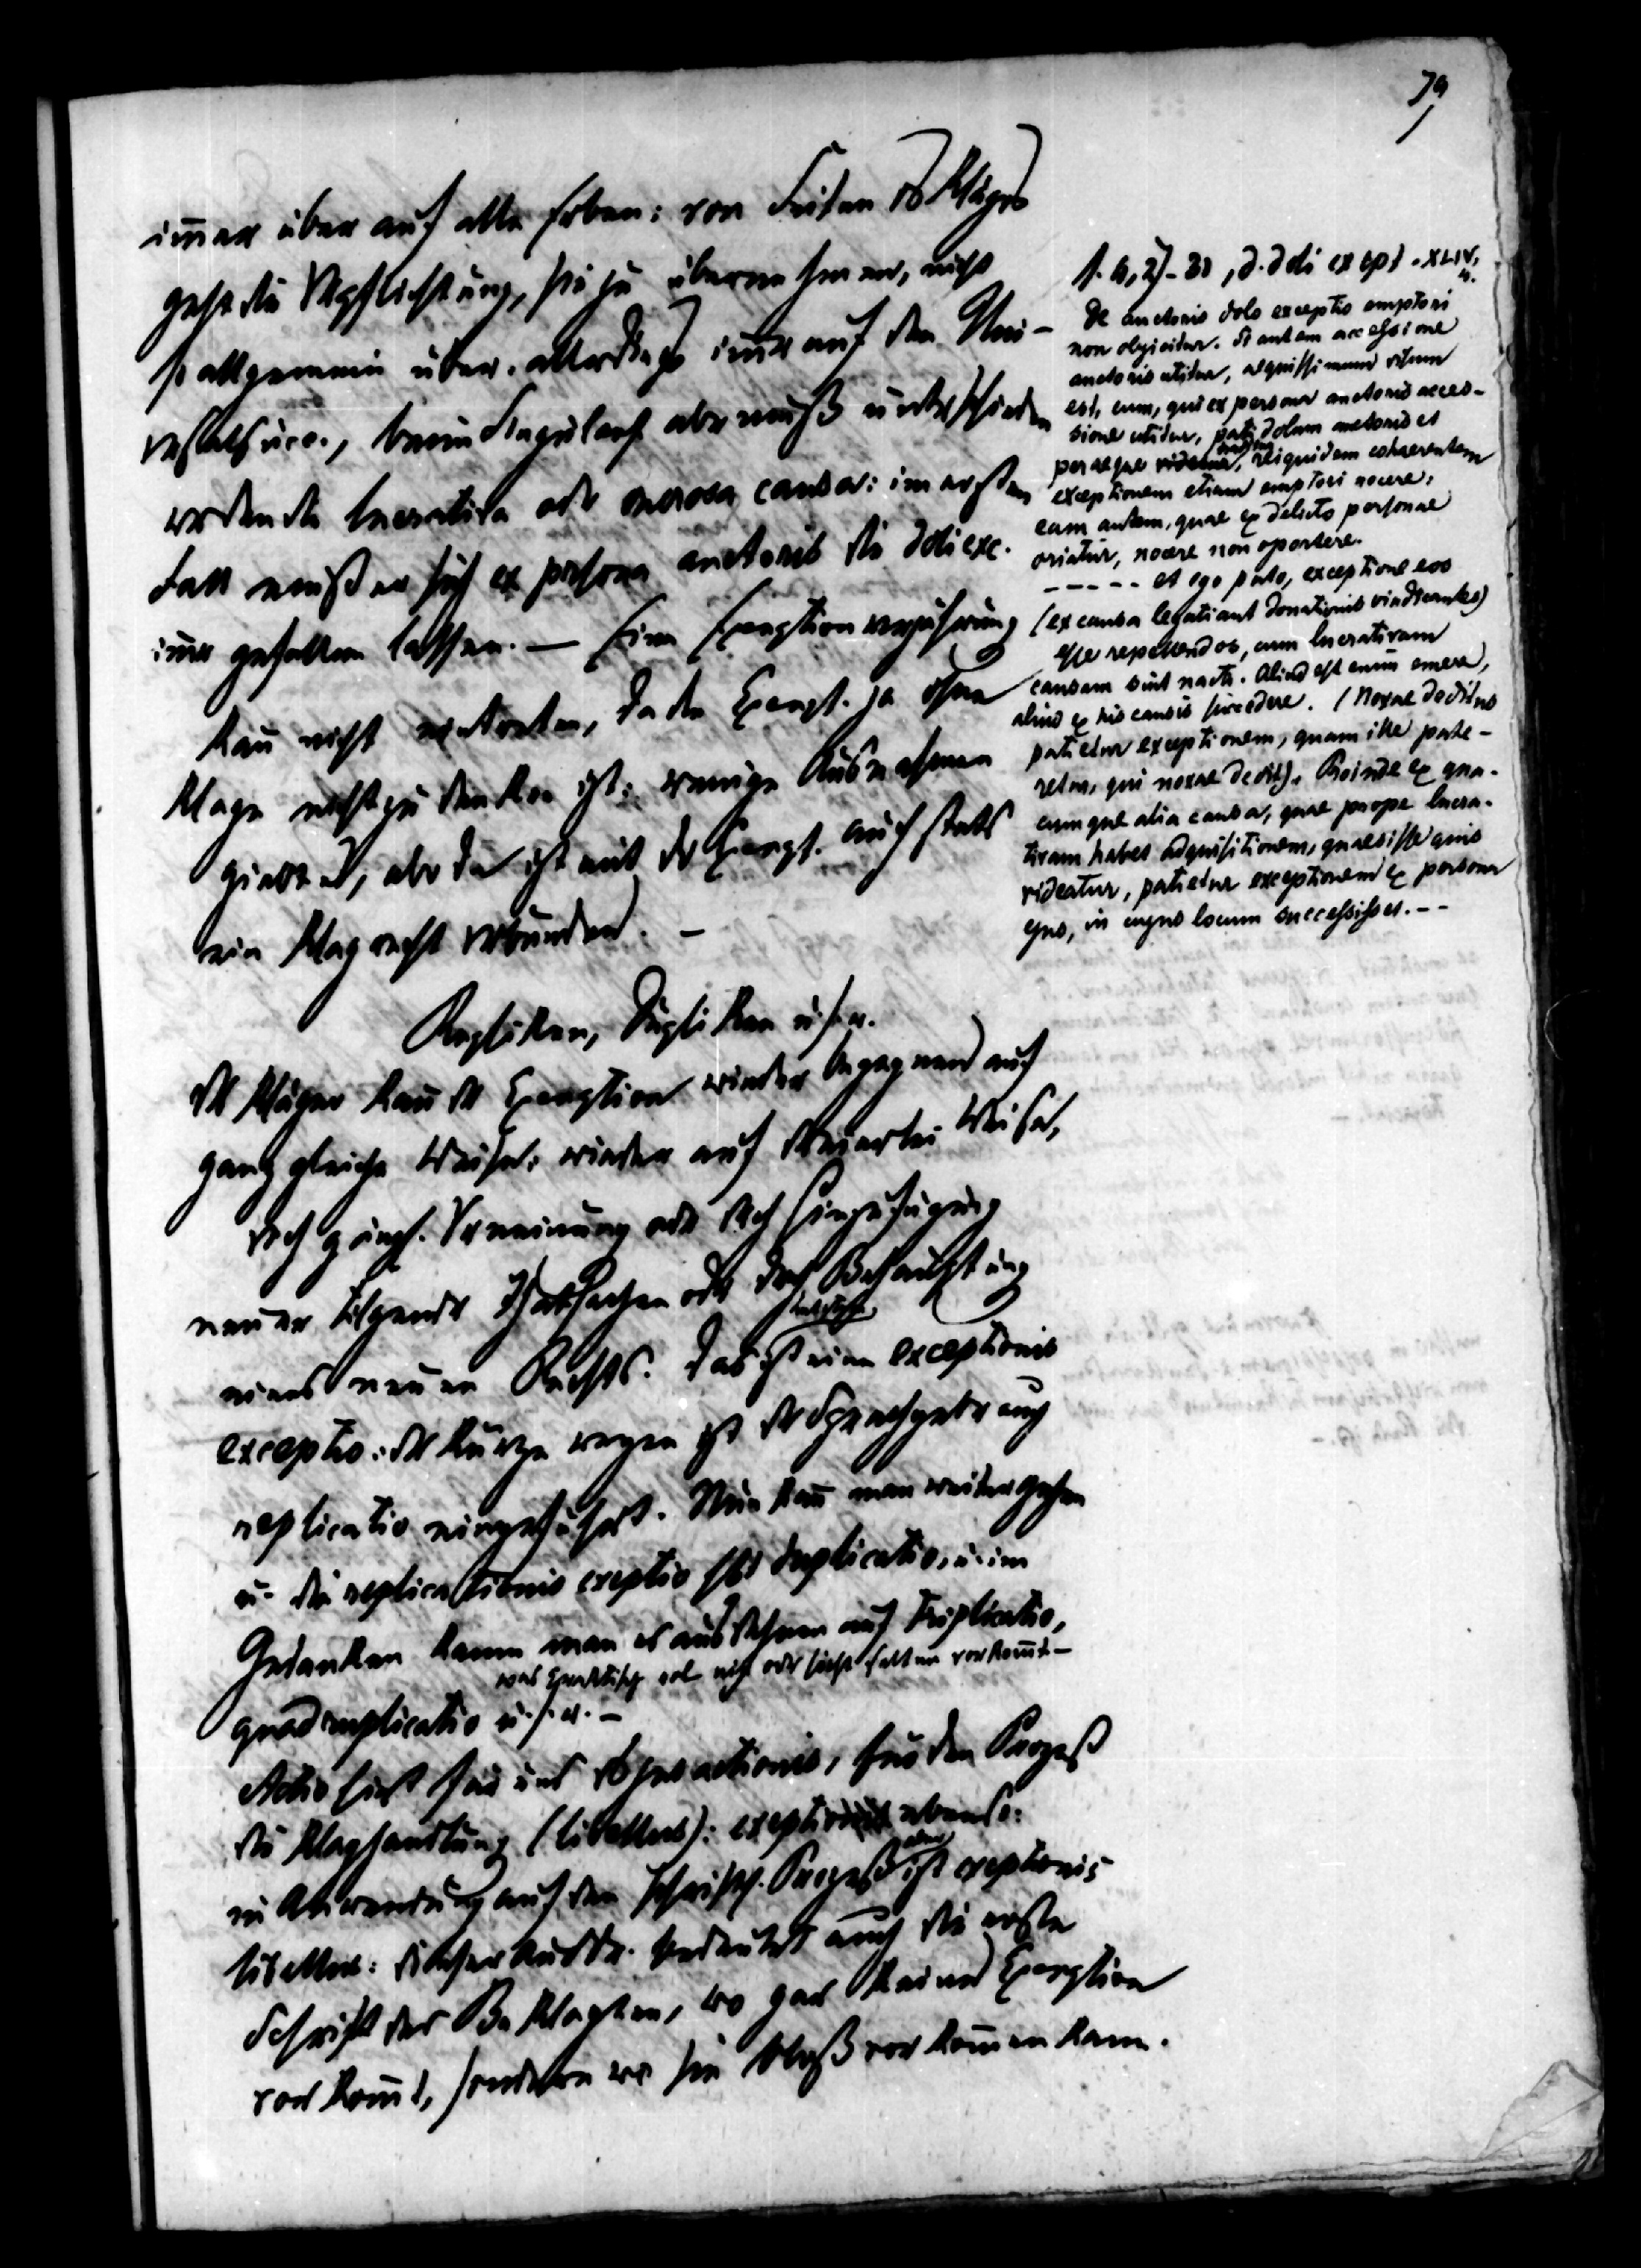 79
immer über auf alle Erben: von Seiten des Klägers
geht die Verpflichtung, sie zu übernehmen, nicht
so allgemein über. allerdings immer auf den Uni-
versalsucc., beim Singularsucc. aber muß unterschieden
werden die lucrativa oder onerosa causa: im ersten
Fall muß er sich ex persona auctoris die doli exc.
immer gefallen lassen. — Eine Exceptionsverjährung
kann nicht eintreten, da die Except. ja ohne
Klage nicht zu denken ist: wenige Ausnahmen
giebt es, aber da ist mit der Except. auch stets
ein Klagrecht verbunden. —
Repliken, Dupliken u.s.w.
Der Kläger kann der Exception wieder begegnen auf
ganz gleiche Weise: wieder auf dreierlei Weise,
durch gänzl. Verneinung oder durch Hinzufügung
neuer tilgender Thatsachen oder durch Behauptung
eines neuen Rechts. Das ist eine exceptionis
exceptio: der Kürze wegen ist der Sprachgebrauch
replicatio eingeführt. Nun kann man weiter gehen
u. die replicationis exceptio ist duplicatio, u. im
Gedanken kann man es ausdehnen auf triplicatio,
was praktisch wol nicht oder höchst selten vorkommt —
quadruplicatio u.s.w. —
Actio heißt für uns das jus actionis, für den Prozeß
die Klaghandlung (libellus): exceptio ebenso:
in Anwendung auf den schriftl. Prozeß aber ist exceptionis
libellus: dieser Ausdr. bedeutet auch die erste
Schrift des Beklagten, wo gar keine Exception
vorkommt, sondern wo sie bloß vorkommen kann.
l. 4, 27-31, D. de doli except. XLIV,
4.
De auctoris dolo exceptio emptori
non objicitur. Si autem accessione
auctoris utitur, aequissimum visum
est, eum, qui ex persona auctoris acces-
sione utitur, pati dolum auctoris et
peraeque traditur, rei quidem cohaerentem
exceptionem etiam emptori nocere,
eam autem, quae ex delicto personae
oriatur, nocere non oportere.
----- et ego puto, exceptione eos
(ex causa legati aut donationis vindicantes)
esse repellendos, cum lucrativam
causam sint nacti. Aliud est enim emere,
aliud ex his causis succedere. (Noxae deditus
patietur exceptionem, quam ille pate-
retur, qui noxae dedit). Proinde ex qua-
cumque alia causa, quae prope lucra-
tivam habet adquisitionem, quaesisse quis
videatur, patietur exceptionem ex persona
ejus, in cujus locum successisset. --